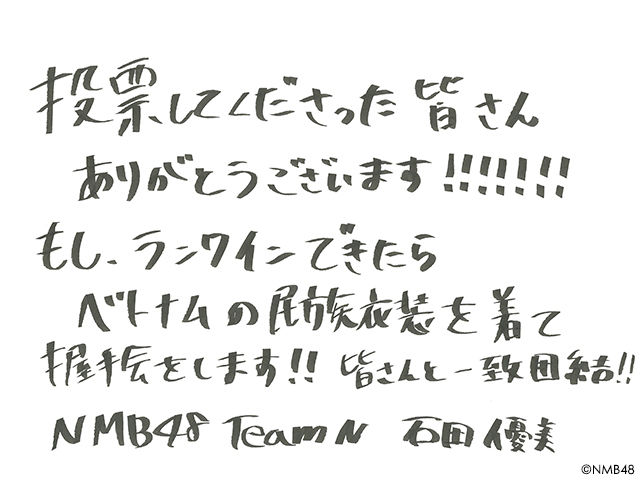 投票してくださった皆さん
ありがとうございます!!!!!!!
もし、ランクインできたら
ベトナムの民族衣装を着て
握手会をします!! 皆さんと一致団結!!
NMB48 Team N 石田優美
©NMB48